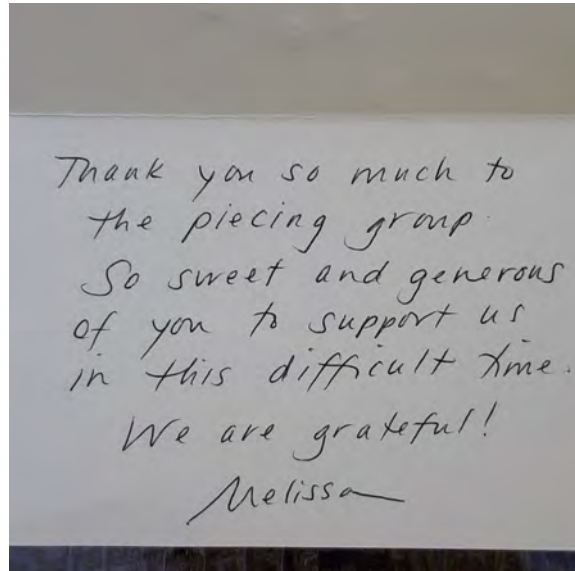 Thank you so much to
the piecing group.
So sweet and generous
of you to support us
in this difficult time.
We are grateful!
Melissa